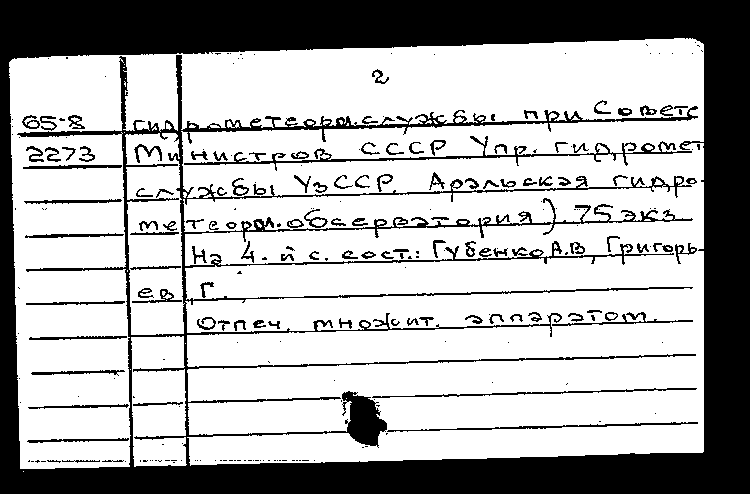 2
65-8 гидрометеорол.службы при Совете
2273 Министров СССР Упр. гидромет
службы УзССР. Аральская гидро-
метеорол.обсерватория). 75 экз
На 4-й с. сост.: Губенко А.В., Григорь-
ев Г.
Отпеч. множит. аппаратом.